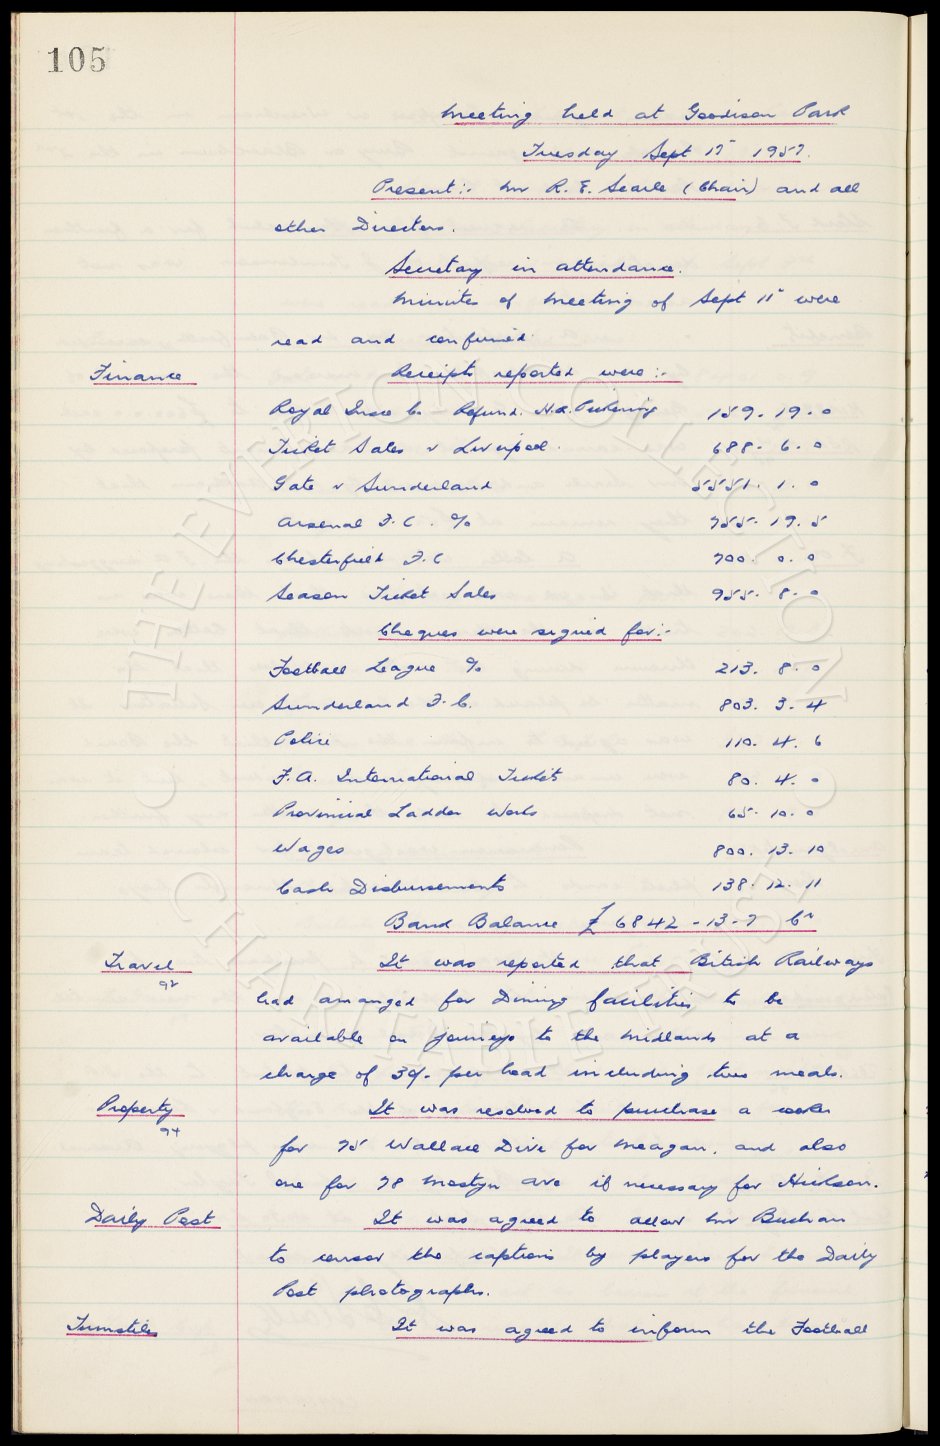 105
Meeting held at Goodison Park
Tuesday Sept 17th 1957.
Present:- Mr R. E. Searle (Chair) and all
other Directors.
Secretary in attendance.
Minutes of Meeting of Sept 11th were
read and confirmed.
Finance
Receipts reported were:-
Royal Insce Co Refund. H.A. Pickering 159. 19. 0
Ticket Sales v Liverpool. 688. 6. 0
Gate v Sunderland 5551. 1. 0
Arsenal F.C. % 755. 19. 5
Chesterfield F.C 700. 0. 0
Season Ticket Sales 955. 8. 0
Cheques were signed for:-
Football League % 213. 8. 0
Sunderland F.C. 803. 3. 4
Police 110. 4. 6
F.A. International Tickets 80. 4. 0
Provincial Ladder Works 65. 10. 0
Wages 800. 13. 10
Cash Disbursements 138. 12. 11
Bank Balance £6842-13-7 Cr
Travel
92
It was reported that British Railways
had arranged for Dining facilities to be
available on journeys to the Midlands at a
charge of 30/- per head including two meals.
Property
94
It was resolved to purchase a cooker
for 75 Wallace Drive for Meagan, and also
one for 78 Mostyn Ave if necessary for Hickson.
Daily Post
It was agreed to allow Mr Buchan
to censor the captions by players for the Daily
Post photographs.
Turnstiles
It was agreed to inform the Football
THE EVERTON COLLECTION
CHARITABLE TRUST